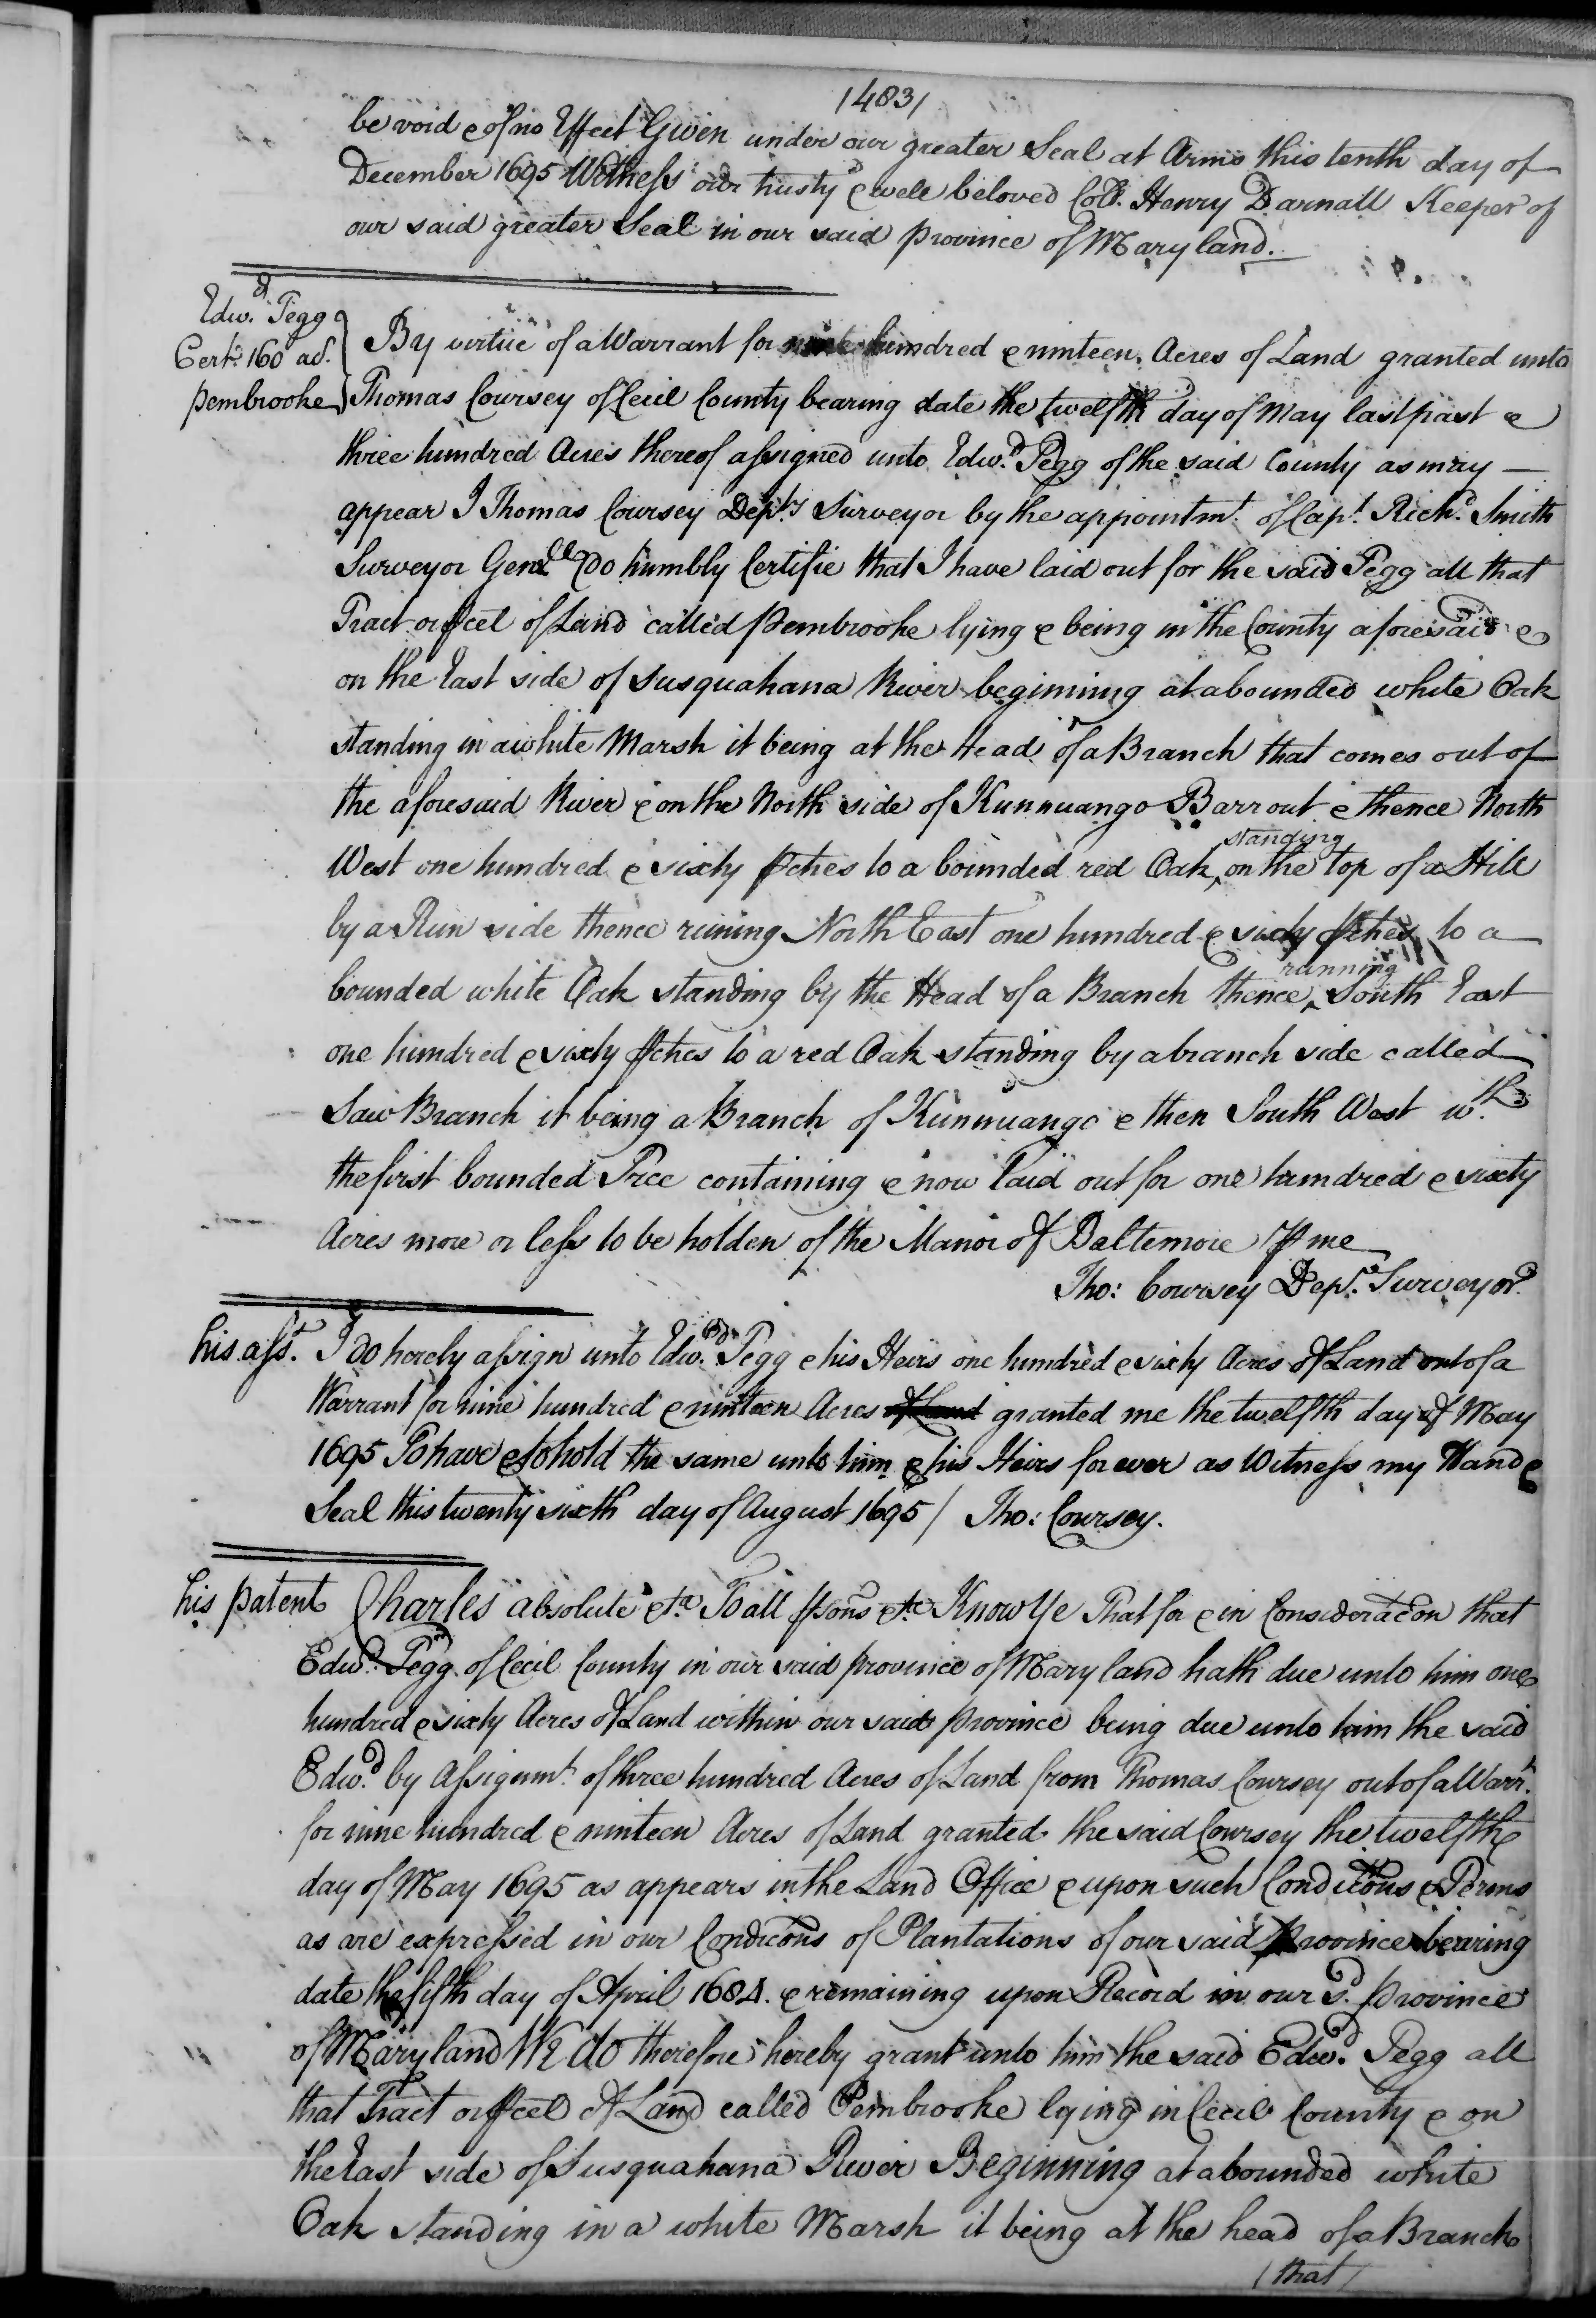 /483/
be void & of no Effect Given under our greater Seal at Arms this tenth day of
December 1695 Witness our trusty & well beloved Coll. Henry Darnall Keeper of
our said greater Seal in our said province of Maryland.
Edw.d Pegg
Cert. 160 ac.
pembrooke
By virtue of a Warrant for nine hundred & ninteen Acres of Land granted unto
Thomas Coursey of Cecil County bearing date the twelfth day of May last past &
three hundred Acres thereof assigned unto Edw.d Pegg of the said County as may
appear I Thomas Coursey Dep.ty Surveyor by the appointm.t of Cap.t Rich.d Smith
Surveyor Gen.ll do humbly Certifie that I have laid out for the said Pegg all that
Tract or pcel of Land called pembrooke lying & being in the County aforesaid &
on the East side of Susquahana River beginning at a bounded white Oak
standing in a white Marsh it being at the Head of a Branch that comes out of
the aforesaid River & on the North side of Kunnuango Barr out & thence North
West one hundred & sixty pches to a bounded red Oak ^standing on the top of a Hill
by a Run side thence runing North East one hundred & sixty pches to a
bounded white Oak standing by the Head of a Branch thence ^running South East
one hundred & sixty pches to a red Oak standing by a branch side called
Saw Branch it being a Branch of Kunnuango & then South West w.th
the first bounded Tree containing & now laid out for one hundred & sixty
Acres more or less to be holden of the Manor of Baltemore p me
Tho: Coursey Dep.ty Surveyor
his ass.t I do hereby assign unto Edw.d Pegg & his Heirs one hundred & sixty Acres of Land out of a
Warrant for nine hundred & ninteen Acres of Land granted me the twelfth day of May
1695 To have & to hold the same unto him & his Heirs for ever as Witness my Hand &
Seal this twenty sixth day of August 1695 / Tho: Coursey.
his patent Charles absolute &ta To all psons &ta Know Ye That for & in Consideracon that
Edw.d Pegg of Cecil County in our said province of Maryland hath due unto him one
hundred & sixty Acres of Land within our said province being due unto him the said
Edw.d by Assignm.t of three hundred Acres of Land from Thomas Coursey out of a Warr.t
for nine hundred & ninteen Acres of Land granted the said Coursey the twelfth
day of May 1695 as appears in the Land Office & upon such Condicons & Terms
as are expressed in our Condicons of Plantations of our said province bearing
date the fifth day of April 1684. & remaining upon Record in our s.d province
of Maryland We do therefore hereby grant unto him the said Edw.d Pegg all
that Tract or pcel of Land called Pembrooke lying in Cecil County & on
the East side of Susquahana River Beginning at a bounded white
Oak standing in a white Marsh it being at the head of a Branch
/that/